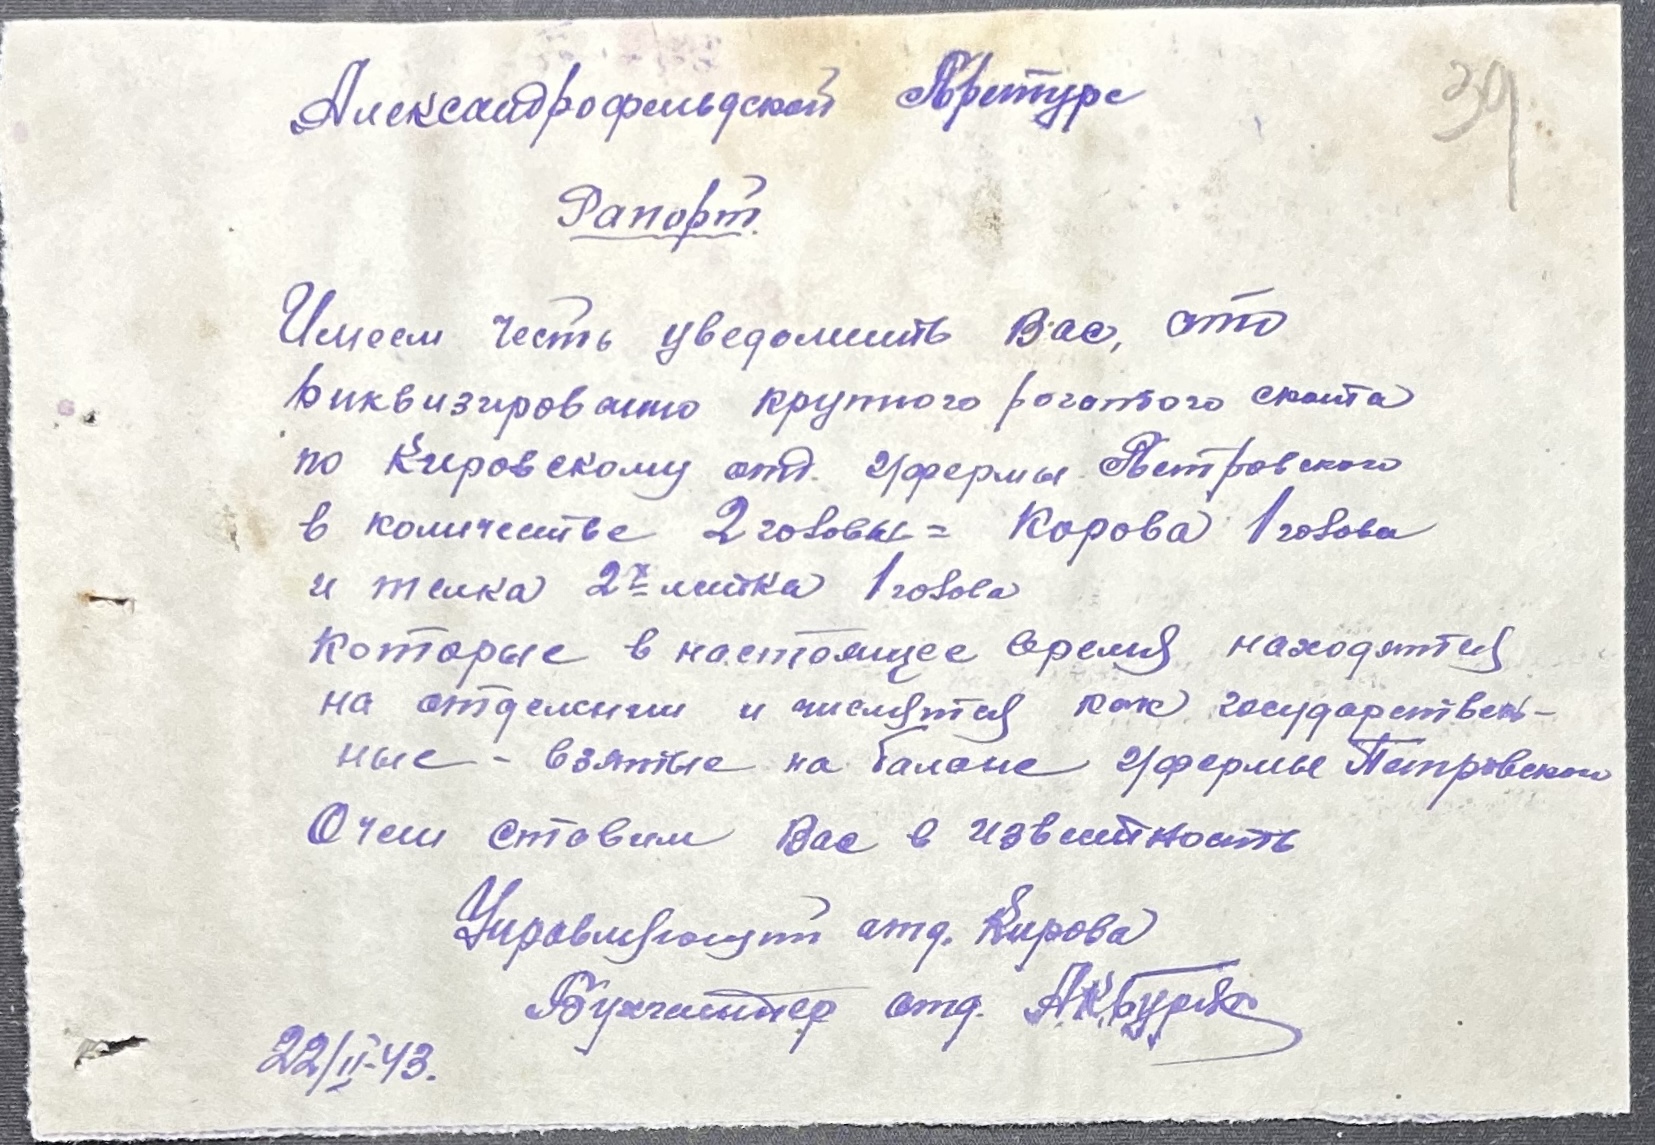 Александрофельдской Претуре
39
Рапорт.
Имеем честь уведомить Вас, что
риквизировано крупного рогатого скота
по Кировскому отд. г/фермы Петровского
в количестве 2 головы = Корова 1 голова
и телка 2х летка 1 голова
которые в настоящее время находятся
на отделении и числятся как государствен-
ные - взятые на баланс г/фермы Петровского
О чем ставим Вас в известность
Управляющий отд. Кирова
Бухгалтер отд.
22/II-43.